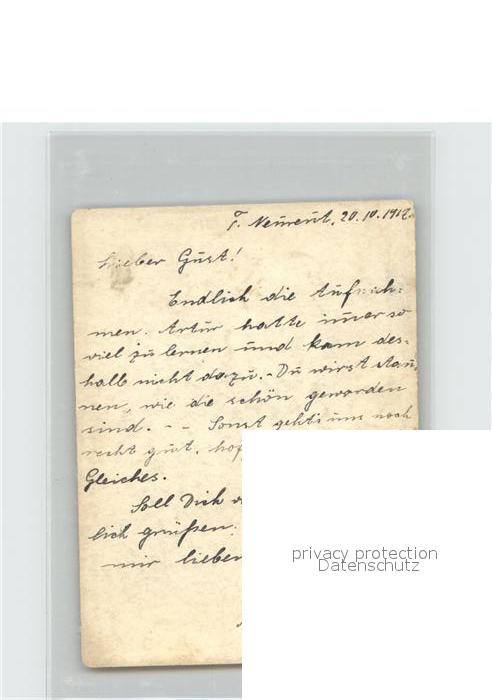 T. Neureut, 20.10.1917.
Lieber Gust!
Endlich die Aufnah-
men. Artur hatte imer so
viel zu lernen und kam des-
halb nicht dazu. - Du wirst stau-
nen, wie die schön geworden
sind. - - Sonst geht's uns noch
recht gut, hof
Gleiches.
Soll Dich
lich grüßen.
mir lieber
privacy protection
Datenschutz